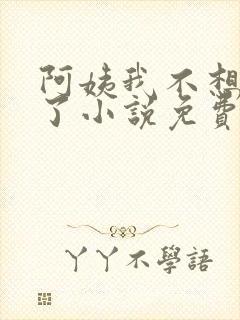 阿姨我不想
了小説免費
丫丫不學語